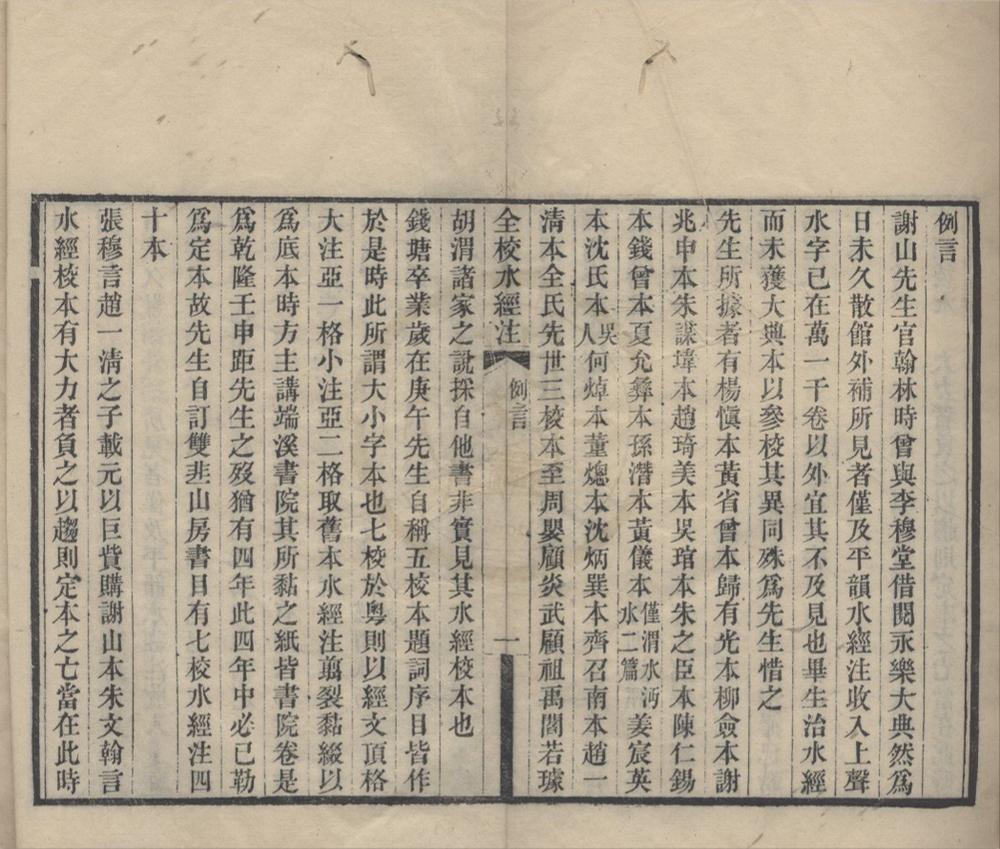 例言
謝山先生官翰林時曾與李穆堂借閱永樂大典然爲
日未久散館外補所見者僅及平韻水經注收入上聲
水字已在萬一千卷以外宜其不及見也畢生治水經
而未獲大典本以參校其異同殊爲先生惜之
先生所據者有楊愼本黃省曾本歸有光本柳僉本謝
兆申本朱謀㙔本趙琦美本吳琯本朱之臣本陳仁錫
本錢曾本夏允彝本孫潛本黃儀本僅渭水沔水二篇姜宸英
本沈氏本吳人何焯本董熜本沈炳巽本齊召南本趙一
淸本全氏先世三校本至周嬰顧炎武顧祖禹閻若璩
全校水經注 例言 一
胡渭諸家之說採自他書非實見其水經校本也
錢塘卒業歲在庚午先生自稱五校本題詞序目皆作
於是時此所謂大小字本也七校於粵則以經文頂格
大注亞一格小注亞二格取舊本水經注翦裂黏綴以
爲底本時方主講端溪書院其所黏之紙皆書院卷是
爲乾隆壬申距先生之歿猶有四年此四年中必已勒
爲定本故先生自訂雙韭山房書目有七校水經注四
十本
張穆言趙一淸之子載元以巨貲購謝山本朱文翰言
水經校本有大力者負之以趨則定本之亡當在此時